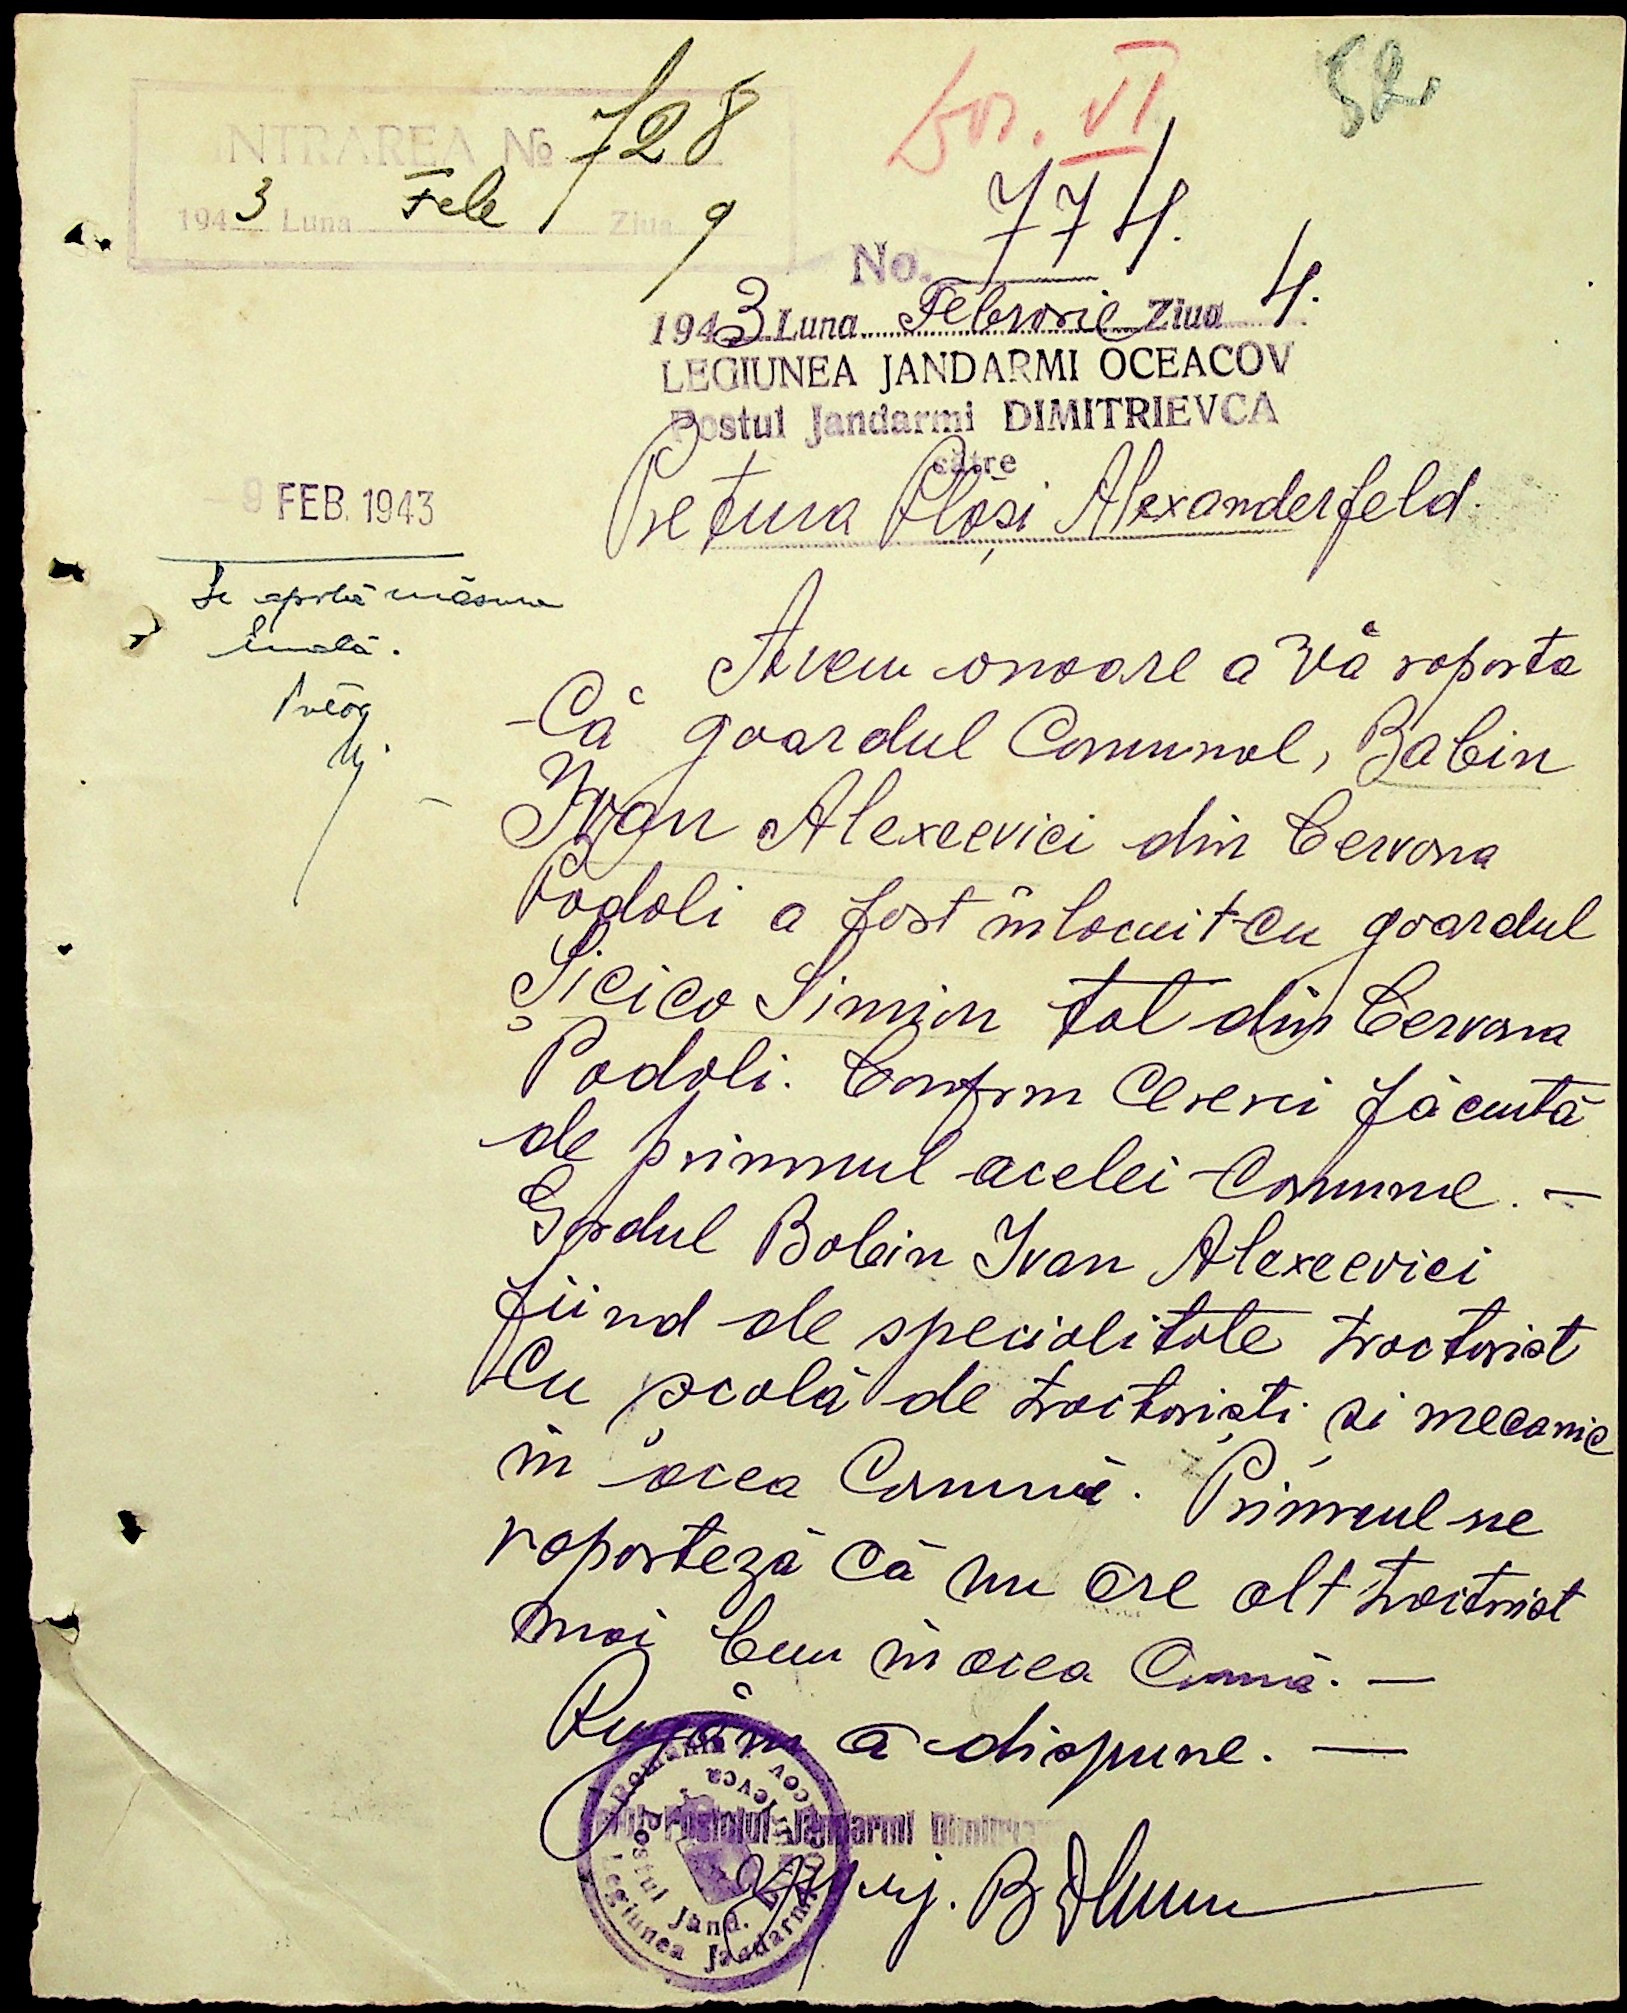 INTRAREA № 728
1943 Luna Feb Ziua 9
Dos. VI
52
No. 774.
1943 Luna Febrorie Ziua 4.
LEGIUNEA JANDARMI OCEACOV
Postul Jandarmi DIMITRIEVCA
către
Pretura Plăsi Alexanderfeld.
9 FEB. 1943
Se aprobă măsura
luată.
Pretor
Avem onoare a Vă roporta
Că goardul Comunol, Babin
Ivan Alexeevici din Cervona
Podoli a fost înlocuit cu goardul
Șicico Simion tot din Cervona
Podoli. Conform Cererei făcută
de primorul acelei Comune. —
Gordul Bobin Ivan Alexeevici
fiind de speciolitote troctorist
Cu școlă de troctoriști și mecanic
în acea Comună. Primorul ne
roporteză Că nu ore olt troctorist
moi bun în acea Comună. —
Rugăm a dispune. —
Postului Jandarmi Dimitrievca
Romania
Legiunea Jandarmi
Postul Jand.
Plut. maj.